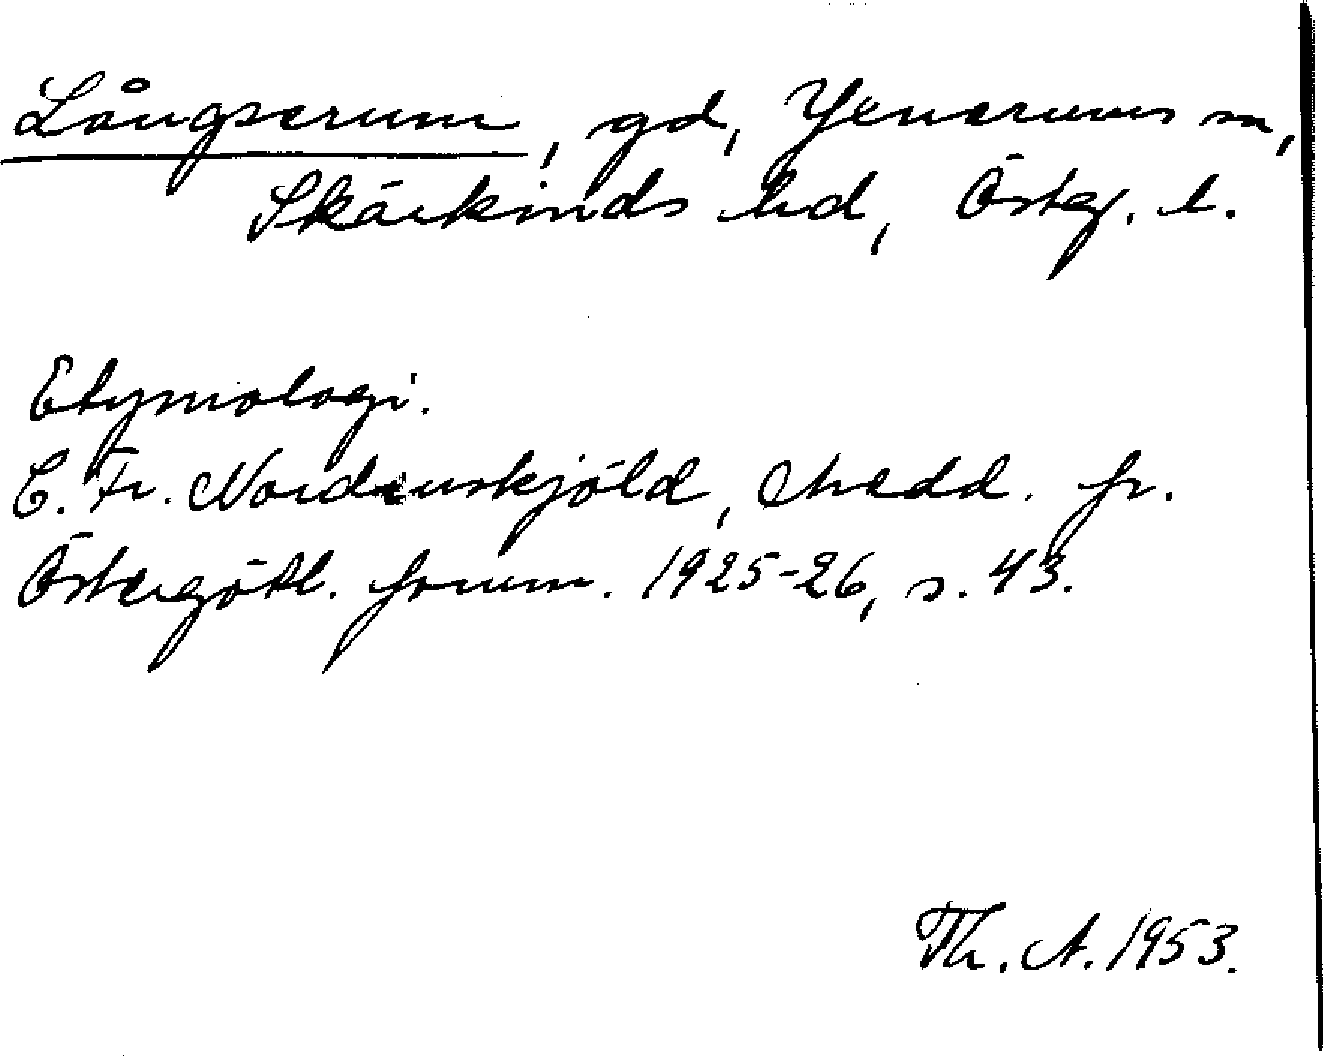 Långserum, gd, Yxnerums sn,
Skärkinds hd, Österg. l.
Etymologi.
C. Fr. Nordenskjöld, Medd. fr.
Östergötl. fornm. 1925-26, s. 43.
Th. A. 1953.